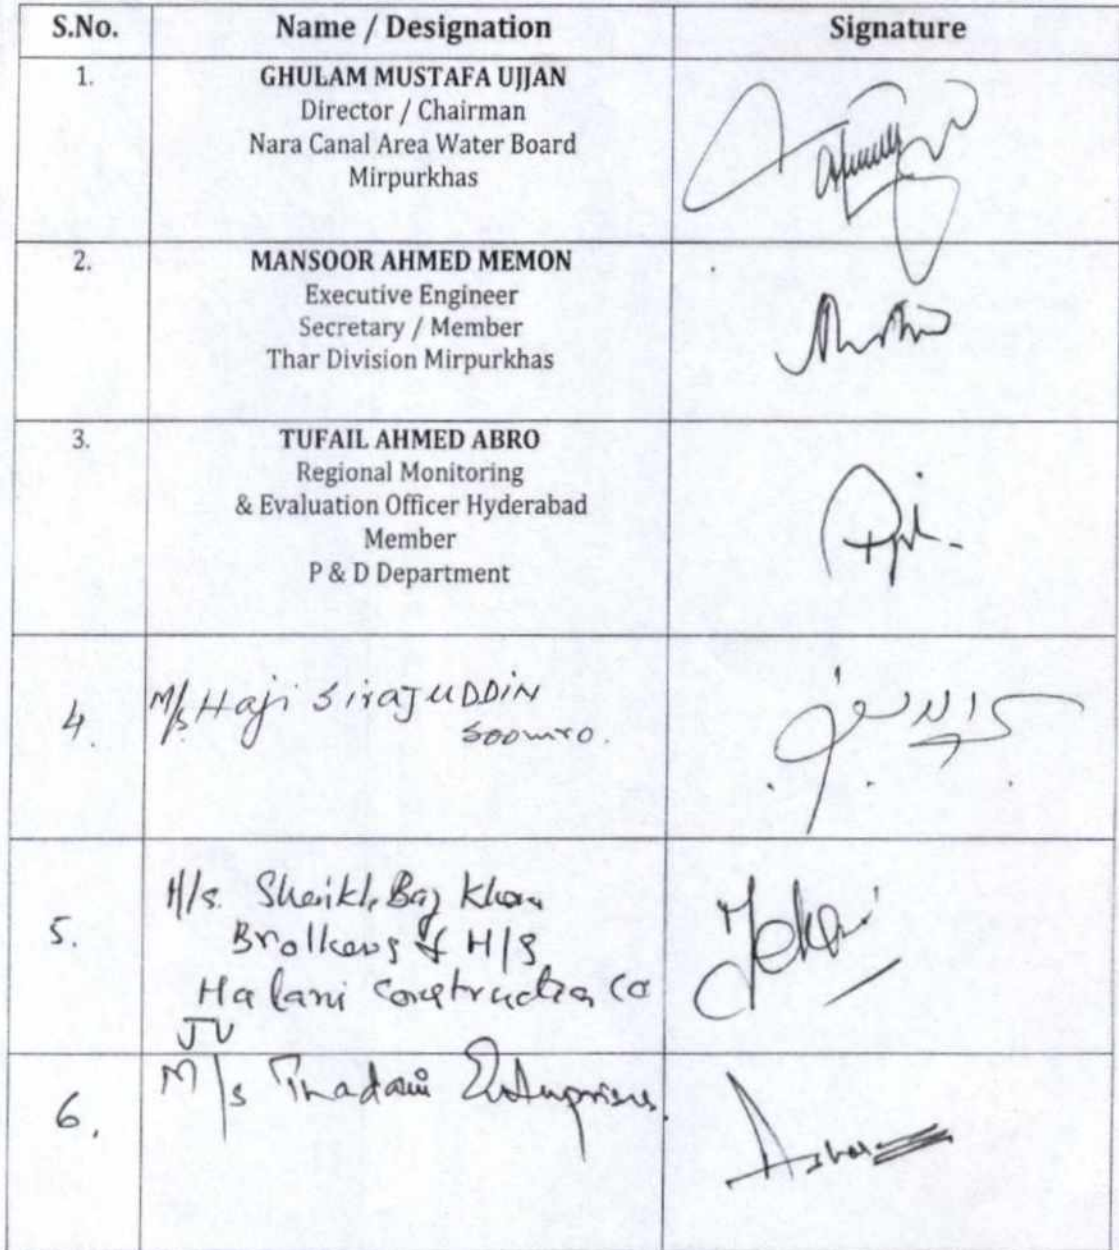 S.No. Name / Designation Signature
1. GHULAM MUSTAFA UJJAN
Director / Chairman
Nara Canal Area Water Board
Mirpurkhas
2. MANSOOR AHMED MEMON
Executive Engineer
Secretary / Member
Thar Division Mirpurkhas
3. TUFAIL AHMED ABRO
Regional Monitoring
& Evaluation Officer Hyderabad
Member
P & D Department
4. M/s Haji SirajUDDiN
Soomro.
5. M/s. Sheikh Baz Khan
Brothers & M/s
Halani Construction Co
JV
6. M/s Thadani Enterprises.